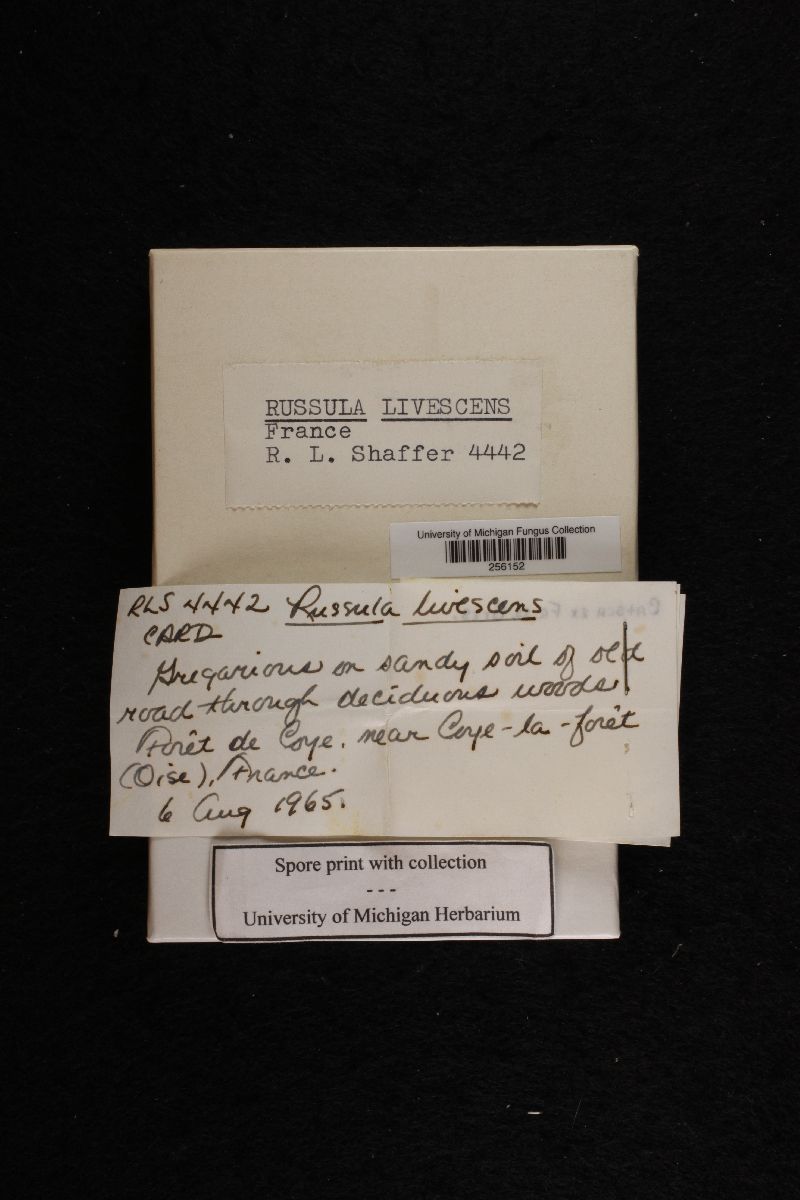 RUSSULA LIVESCENS
France
R. L. Shaffer 4442
University of Michigan Fungus Collection
256152
RLS 4442 Russula livescens
CARD
Gregarious on sandy soil of old
road through deciduous woods,
Forêt de Coye, near Coye-la-forêt
(Oise), France.
6 Aug 1965.
Spore print with collection
---
University of Michigan Herbarium